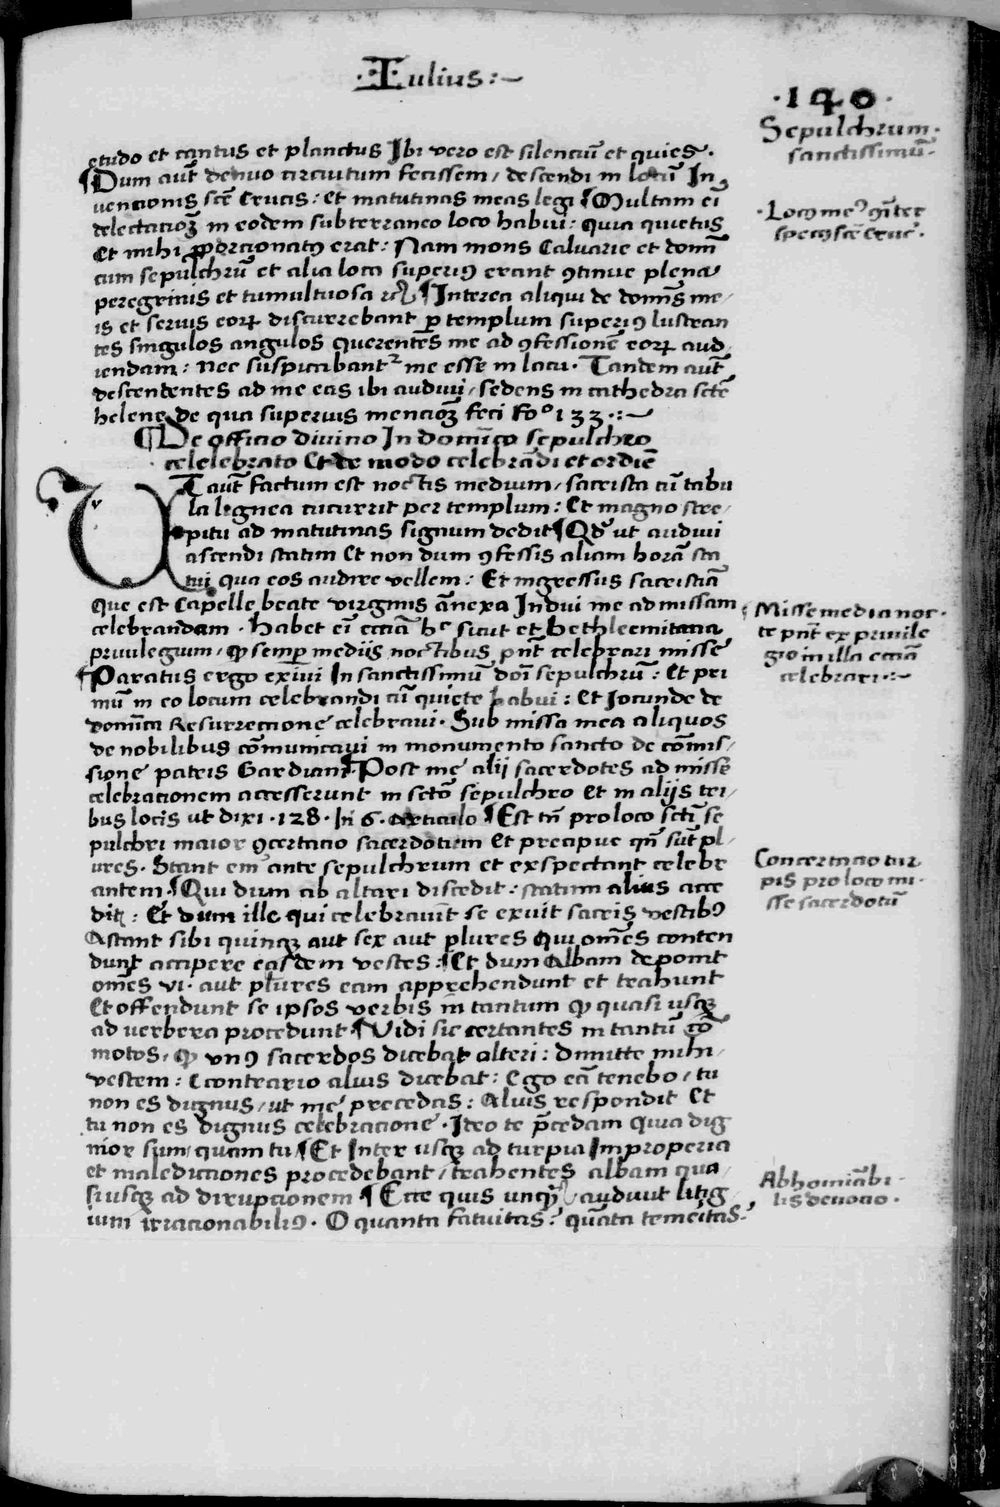 ·Iulius:~
·140·
Sepulchrum·
sanctissimū·
etudo et cantus et planctus Ibi vero est silenciū et quies·
¶Dum aūt denuo circuitum fecissem / descendi in locū In
uencionis scē Crucis: Et matutinas meas legi ¶Multam eī
delectacioꝫ in eodem subterraneo loco habui: quia quietus
Et mihi ꝓporcionatꝯ erat: Nam mons Calvarie et domī
cum sepulchrū et alia loca superiꝯ erant ꝯtinue plena
peregrinis et tumultuosa ¶Interea aliqui de domīs me/
is et seruis eorꝝ discurrebant ꝑ templum superiꝯ lustran
tes singulos angulos querentes me ad ꝯfessionē eorꝝ aud
iendam: nec suspicabantr me esse in lacu· Tandem aūt
descendentes ad me eas ibi audiui / sedens in cathedra sctē
helene de qua superius mencioꝫ feci Fo° 133·:~
·Locꝯ meꝯ
specꝯ scē Cruc̄·
¶De officio divino In domīco sepulchro
celelebrato Et de modo celebrādi et ordīē
UT aūt factum est noctis medium / sacrista cū tabu
la lignea cucurrit per templum: Et magno stre/
pitu ad matutinas signum dedit ¶Qd̄ ut audiui
ascendi statim Et non dum ꝯfessis aliam horā sta
tui qua eos audire vellem: Et ingressus sacristiā
que est Capelle beate virginis ānexa Indui me ad missam
celebrandam · habet eī eccīā hc sicut et Bethleemitana
priuilegium / ꝙ semꝑ mediis noctibus pn̄t celebrari misse
¶Paratus ergo exivi In sanctissimū doī sepulchrū: Et pri
mū in eo locum celebrandi cū quiete habui: Et Iocunde de
domīca Resurrectione celebraui· Sub missa mea aliquos
de nobilibus cōmunicaui in monumento sancto de cōmis/
sione patris Gardiani ¶Post me alii sacerdotes ad missē
celebracionem accesserunt in sctō sepulchro Et in alijs tri/
bus locis ut dixi·128· In 6· Articulo ¶Est tn̄ pro loco sctī se
pulchri maior ꝯcertacio sacerdotum Et precipue qn̄ sūt pl/
ures· Stant em̄ ante sepulchrum et exspectant celebr
antem· ¶Qui dum ab altari discedit: statim alius acce
dit: Et dum ille qui celebrauit se exuit sacris vestibꝯ
Astant sibi quinqꝫ aut sex aut plures qui om̄es conten
dunt accipere easdem vestes: ¶Et dum Albam deponit
om̄es vi· aut plures eam apprehendunt et trahunt
Et offendunt se ipsos verbis in tantum ꝙ quasi usqꝫ
ad verbera procedunt ¶Vidi sic certantes in tantū cō
motos / ꝙ vnꝯ sacerdos dicebat alteri: dimitte mihi /
vestem: E contrario alius dicebat: Ego eā tenebo / tu
non es dignus / ut me precedas: Alius respondit Et
tu non es dignus celebracione· Ideo te p̄cedam quia dig
nior sum quam tu ¶Et Inter usqꝫ ad turpia Improperia
et maledictiones procedebant / trahentes albam qua/
si usqꝫ ad dirupcionem ¶Ecce quis unq̄ audiuit litig
ium irracionabiliꝯ· O quanta fatuitas? quāta temeritas·
Misse media noc·
te pn̄t ex priuile
gio in illa eccīā
celebrari·:~
Concertacio tur
pis pro loco mi·
sse sacerdotū
Abhominābi·
lis deuocio·